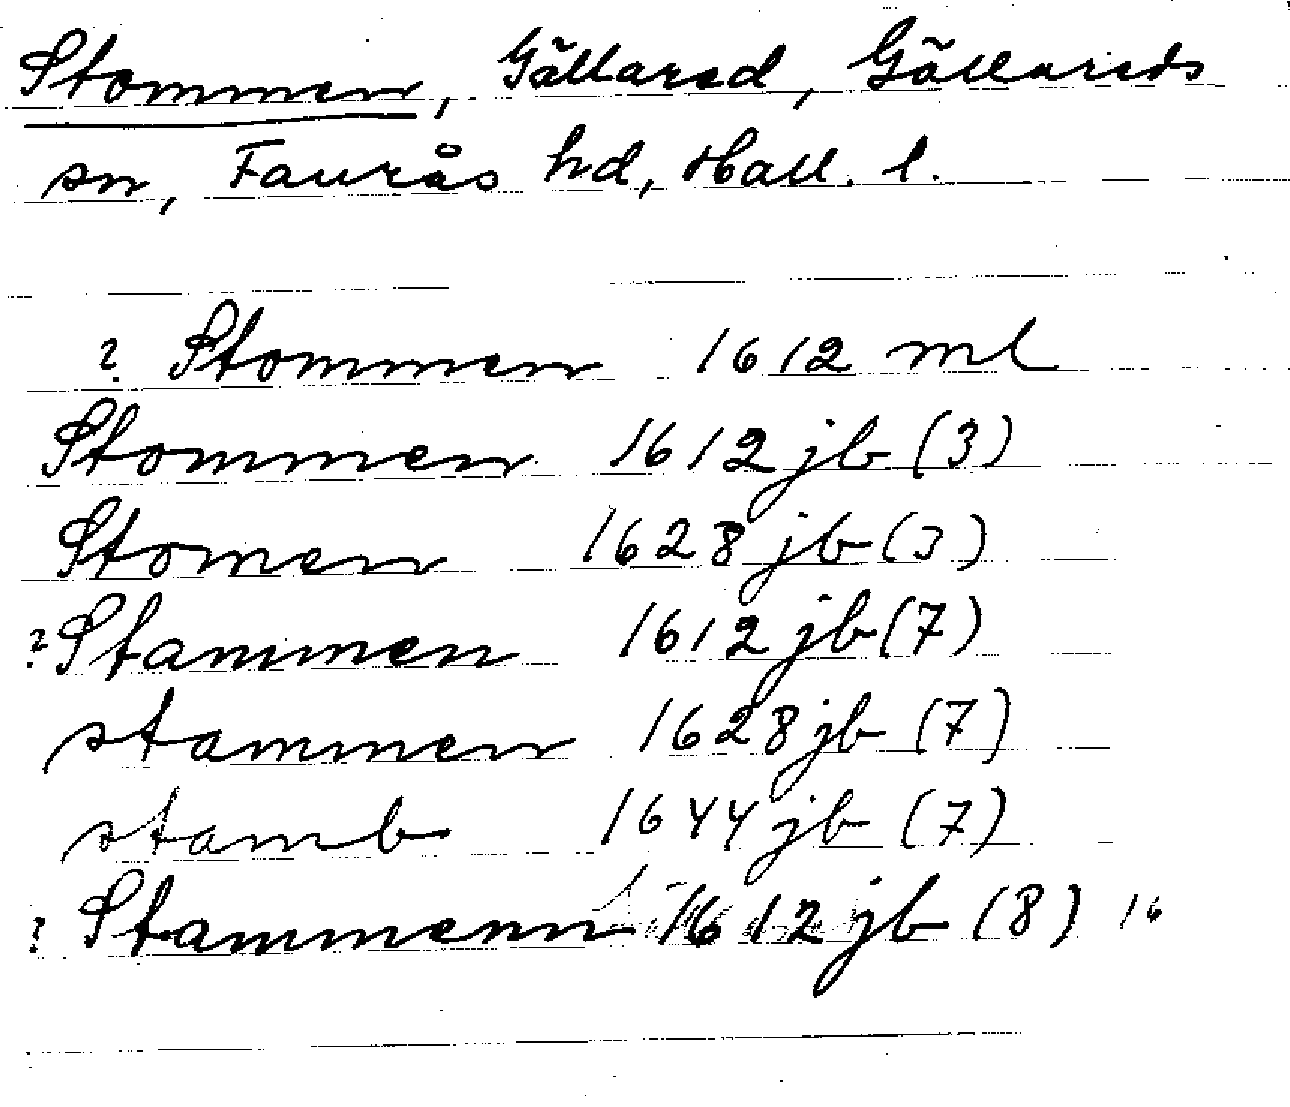 Stommen, Gällared, Gällareds
sn, Faurås hd, Hall. l.
? Stommen 1612 ml
Stommen 1612 jb (3)
Stomen 1628 jb (3)
? Stammen 1612 jb (7)
stammen 1628 jb (7)
stamb 1644 jb (7)
? Stammenn 1612 jb (8) 16